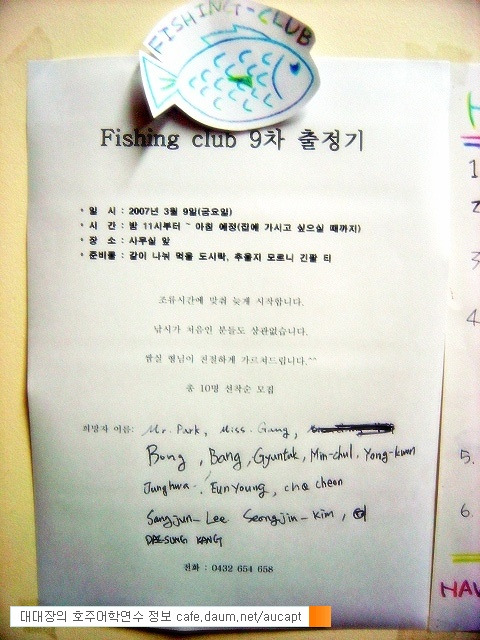 FISHING-CLUB
Fishing club 9차 출정기
* 일 시 : 2007년 3월 9일(금요일)
* 시 간 : 밤 11시부터 ~ 아침 예정(집에 가시고 싶으실 때까지)
* 장 소 : 사무실 앞
* 준비물 : 같이 나눠 먹을 도시락, 추울지 모르니 긴팔 티
조류시간에 맞춰 늦게 시작합니다.
낚시가 처음인 분들도 상관없습니다.
짬실 형님이 친절하게 가르쳐드립니다.^^
총 10명 선착순 모집
희망자 이름: Mr. Park, Miss. Gang,
Bong, Bang, Gyuntak, Min-chul. Yong-kwan
Junghwa, EunYoung, cha cheon
Sangjun-Lee Seongjin-Kim,
DAESUNG KANG
전화 : 0432 654 658
H
1
2
3
4
5.
6.
HAV
대대장의 호주어학연수 정보 cafe.daum.net/aucapt